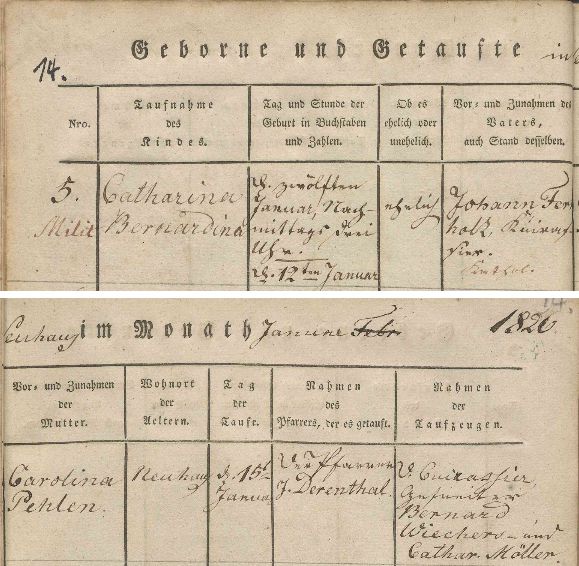 14.
Geborne und Getaufte in
Nro.
Taufnahme
des
Kindes.
Tag und Stunde der
Geburt in Buchstaben
und Zahlen.
Ob es
ehelich oder
unehelich.
Vor- und Zunahmen des
Vaters,
auch Stand desselben.
5.
Milit
Catharina
Bernardina
d. zwölften
Januar, Nach-
mittags drei
Uhr.
d. 12ten Januar
ehelich
Johann Fer
holz, Kuiras-
sier.
14.
Neuhaus im Monath Januar Febr. 1826
Vor- und Zunahmen
der
Mutter.
Wohnort
der
Aeltern.
Tag
der
Taufe.
Nahmen
des
Pfarrers, der es getauft.
Nahmen
der
Taufzeugen.
Carolina
Pehlen.
Neuhaus
d. 15t
Januar
Der Pfarrer
J. Derenthal.
D. Cuirassier,
Gefreiter
Bernard
Wiechers und
Cathar. Möller.